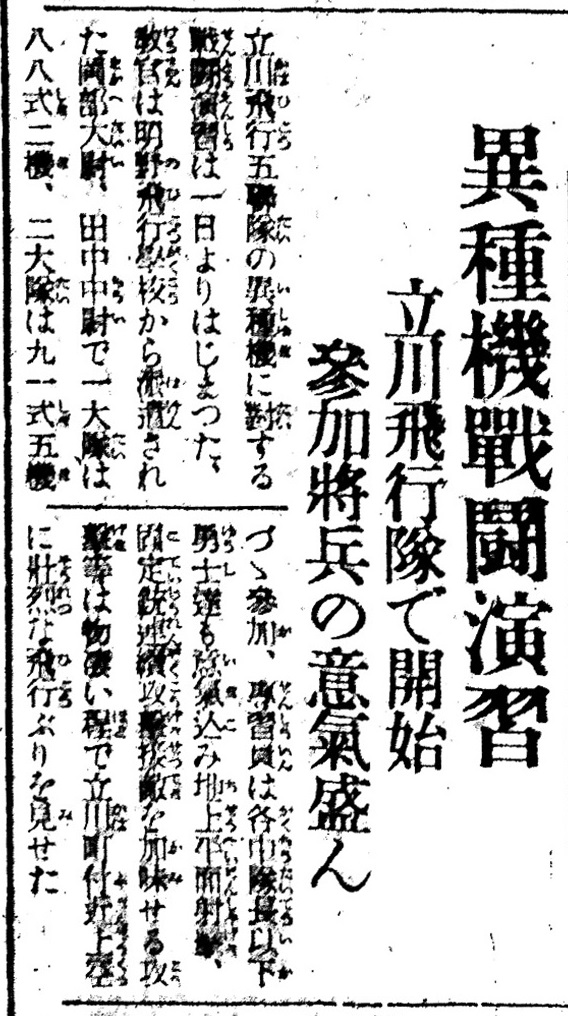 異種機戰鬪演習
立川飛行隊で開始
參加將兵の意氣盛ん
立川飛行五聯隊の異種機に對する
戰鬪演習は一日よりはじまつた、
教官は明野飛行學校から派遣され
た岡部大尉、田中中尉で一大隊は
八八式二機、二大隊は九一式五機
づゝ參加、專習員は各中隊長以下
勇士達も意氣込み地上平面射擊、
固定銃連續攻擊 敵を加味せる攻
擊等は物凄い程で立川町付近上空
に壯烈な飛行ぶりを見せた